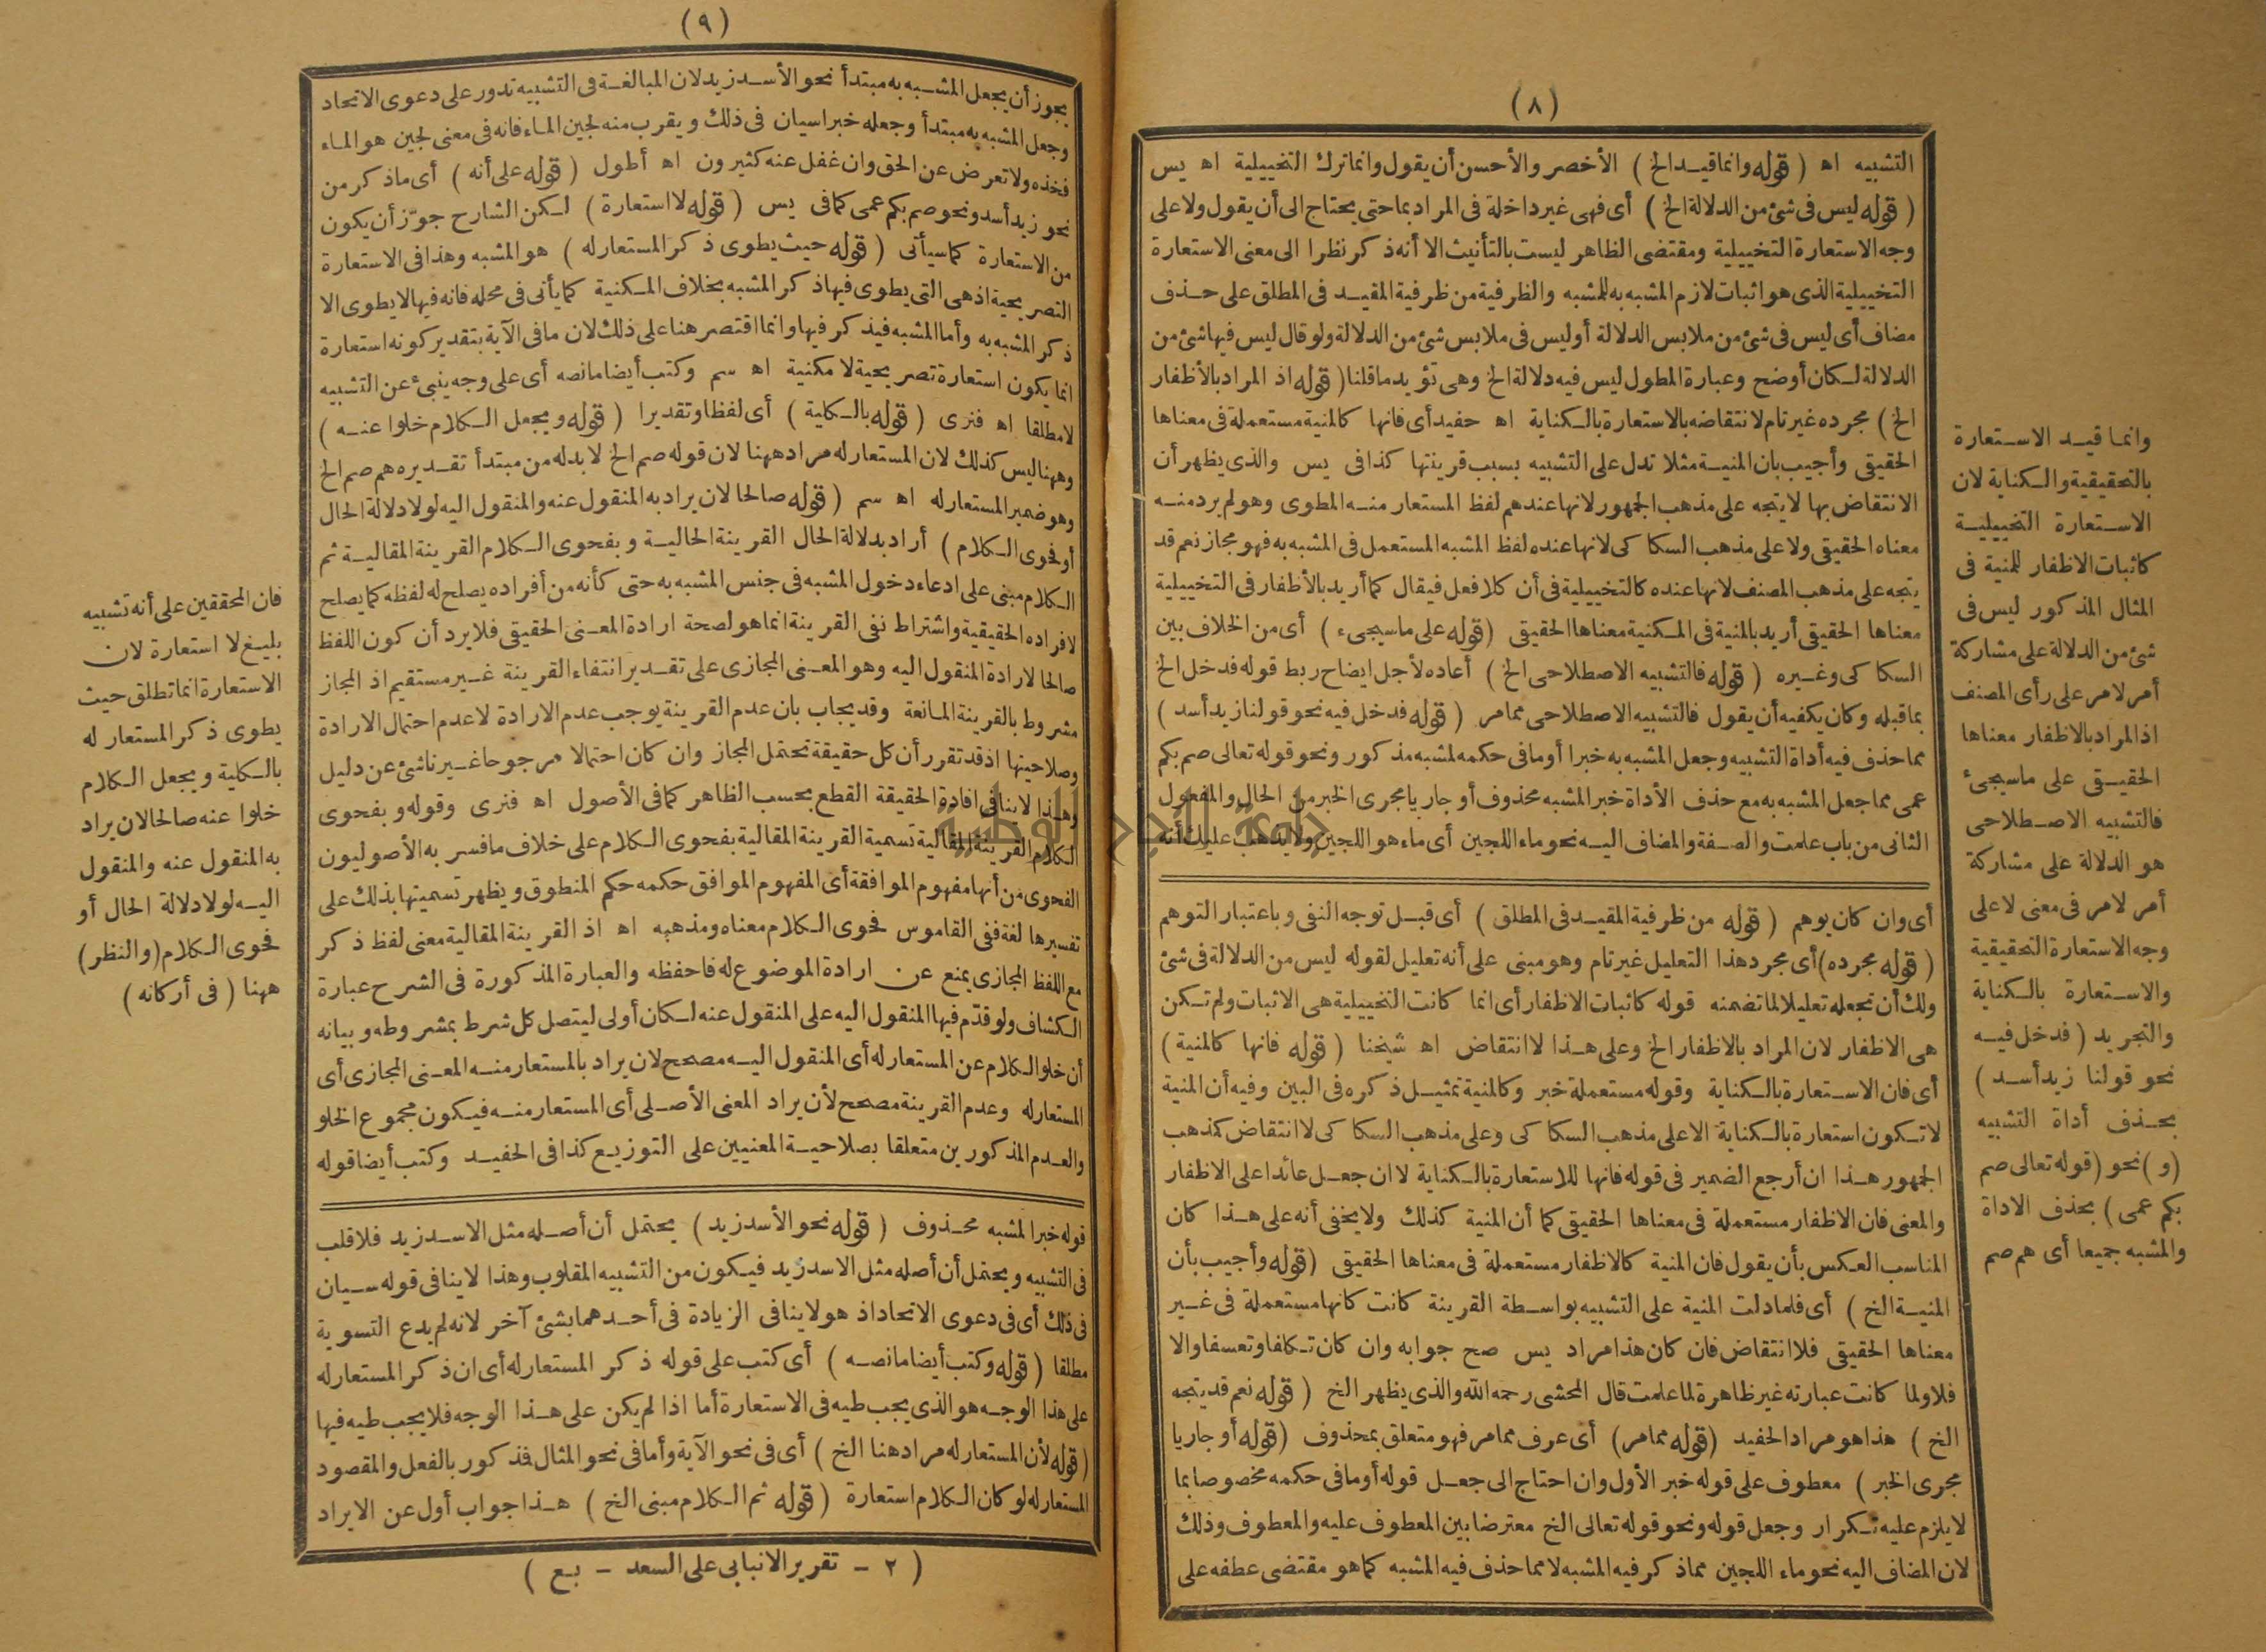 (٨)
التشبيه اه (قوله وانما قيد الخ) الأخصر والأحسن أن يقول وانما ترك التخييلية اه يس
(قوله ليس في شئ من الدلالة الخ) أى فهى غير داخلة فى المراد بما حتى يحتاج الى أن يقول ولا على
وجه الاستعارة التخييلية ومقتضى الظاهر ليست بالتأنيث الا أنه ذكر نظرا الى معنى الاستعارة
التخييلية الذى هو اثبات لازم المشبه به للمشبه والظرفية من ظرفية المقيد فى المطلق على حذف
مضاف أى ليس فى شئ من ملابس الدلالة أو ليس فى ملابس شئ من الدلالة ولو قال ليس فيها شئ من
الدلالة لكان أوضح وعبارة المطول ليس فيه دلالة الخ وهى تؤيد ما قلنا (قوله اذ المراد بالأظفار
الخ) مجرده غير تام لانتقاضه بالاستعارة بالكناية اه حفيد أى فانها كالمنية مستعملة فى معناها
الحقيقى وأجيب بان المنية مثلا تدل على التشبيه بسبب قرينتها كذا فى يس والذى يظهر أن
الانتقاض بها لا يتجه على مذهب الجمهور لانها عندهم لفظ المستعار منه المطوى وهو لم يرد منه
معناه الحقيقى ولا على مذهب السكاكى لانها عنده لفظ المشبه المستعمل فى المشبه به فهو مجاز نعم قد
يتجه على مذهب المصنف لانها عنده كالتخييلية فى أن كلا فعل فيقال كما أريد بالأظفار فى التخييلية
معناها الحقيقى أريد بالمنية فى المكنية معناها الحقيقى (قوله على ما سيجىء) أى من الخلاف بين
السكاكى وغيره (قوله فالتشبيه الاصطلاحى الخ) أعاده لأجل ايضاح ربط قوله فدخل الخ
بما قبله وكان يكفيه أن يقول فالتشبيه الاصطلاحى ممامر (قوله فدخل فيه نحو قولنا زيد أسد)
مما حذف فيه أداة التشبيه وجعل المشبه به خبرا أو ما فى حكمه لمشبه مذكور ونحو قوله تعالى صم بكم
عمى مما جعل المشبه به مع حذف الأداة خبر المشبه محذوف أو جاريا مجرى الخبر من الحال والمفعول
الثانى من باب علمت والصفة والمضاف اليه نحو ماء اللجين أى ماء هو اللجين ولا يذهب عليك أنه
أى وان كان يوهم (قوله من ظرفية المقيد فى المطلق) أى قبل توجه النفى وباعتبار التوهم
(قوله مجرده) أى مجرد هذا التعليل غير تام وهو مبنى على أنه تعليل لقوله ليس من الدلالة فى شئ
ولك أن تجعله تعليلا لما تضمنه قوله كاثبات الاظفار أى انما كانت التخييلية هى الاثبات ولم تكن
هى الاظفار لان المراد بالاظفار الخ وعلى هذا لا انتقاض اه شيخنا (قوله فانها كالمنية)
أى فان الاستعارة بالكناية وقوله مستعملة خبر وكالمنية تمثيل ذكره فى البين وفيه أن المنية
لا تكون استعارة بالكناية الا على مذهب السكاكى وعلى مذهب السكاكى لا انتقاض كمذهب
الجمهور هذا ان أرجع الضمير فى قوله فانها للاستعارة بالكناية لا ان جعل عائدا على الاظفار
والمعنى فان الاظفار مستعملة فى معناها الحقيقى كما أن المنية كذلك ولا يخفى أنه على هذا كان
المناسب العكس بأن يقول فان المنية كالاظفار مستعملة فى معناها الحقيقى (قوله وأجيب بأن
المنية الخ) أى فلما دلت المنية على التشبيه بواسطة القرينة كانت كانها مستعملة فى غير
معناها الحقيقى فلا انتقاض فان كان هذا مراد يس صح جوابه وان كان تكلفا وتعسفا والا
فلا ولما كانت عبارته غير ظاهرة لما علمت قال المحشى رحمه الله والذى يظهر الخ (قوله نعم قد يتجه
الخ) هذا هو مراد الحفيد (قوله ممامر) أى عرف ممامر فهو متعلق بمحذوف (قوله أو جاريا
مجرى الخبر) معطوف على قوله خبر الأول وان احتاج الى جعل قوله أو ما فى حكمه مخصوصا بما
لا يلزم عليه تكرار وجعل قوله ونحو قوله تعالى الخ معترضا بين المعطوف عليه والمعطوف وذلك
لان المضاف اليه نحو ماء اللجين مما ذكر فيه المشبه لا مما حذف فيه المشبه كما هو مقتضى عطفه على
وانما قيد الاستعارة
بالتحقيقية والكناية لان
الاستعارة التخييلية
كاثبات الاظفار للمنية فى
المثال المذكور ليس فى
شئ من الدلالة على مشاركة
أمر لامر على رأى المصنف
اذ المراد بالاظفار معناها
الحقيقى على ماسيجىء
فالتشبيه الاصطلاحى
هو الدلالة على مشاركة
أمر لامر فى معنى لا على
وجه الاستعارة التحقيقية
والاستعارة بالكناية
والتجريد (فدخل فيه
نحو قولنا زيد أسد)
بحذف أداة التشبيه
(و) نحو (قوله تعالى صم
بكم عمى) بحذف الاداة
والمشبه جميعا أى هم صم
(٩)
يجوز أن يجعل المشبه به مبتدأ نحو الأسد زيد لان المبالغة فى التشبيه تدور على دعوى الاتحاد
وجعل المشبه به مبتدأ وجعله خبرا سيان فى ذلك ويقرب منه لجين الماء فانه فى معنى لجين هو الماء
فخذه ولا تعرض عن الحق وان غفل عنه كثيرون اه أطول (قوله على أنه) أى ما ذكر من
نحو زيد أسد ونحو صم بكم عمى كما فى يس (قوله لا استعارة) لكن الشارح جوّز أن يكون
من الاستعارة كما سيأتى (قوله حيث يطوى ذكر المستعار له) هو المشبه وهذا فى الاستعارة
التصريحية اذ هى التى يطوى فيها ذكر المشبه بخلاف المكنية كما يأتى فى محله فانه فيها لا يطوى الا
ذكر المشبه به وأما المشبه فيذكر فيها وانما اقتصر هنا على ذلك لان ما فى الآية بتقدير كونه استعارة
انما يكون استعارة تصريحية لا مكنية اه سم وكتب أيضا ما نصه أى على وجه ينبئ عن التشبيه
لا مطلقا اه فنرى (قوله بالكلية) أى لفظا وتقديرا (قوله ويجعل الكلام خلوا عنه)
وههنا ليس كذلك لان المستعار له مراد ههنا لان قوله صم الخ لا بد له من مبتدأ تقديره هم صم الخ
وهو ضمير المستعار له اه سم (قوله صالحا لان يراد به المنقول عنه والمنقول اليه لولا دلالة الحال
أو فحوى الكلام) أراد بدلالة الحال القرينة الحالية وبفحوى الكلام القرينة المقالية ثم
الكلام مبنى على ادعاء دخول المشبه فى جنس المشبه به حتى كأنه من أفراده يصلح له لفظه كما يصلح
لافراده الحقيقية واشتراط نفى القرينة انما هو لصحة ارادة المعنى الحقيقى فلا يرد أن كون اللفظ
صالحا لارادة المنقول اليه وهو المعنى المجازى على تقدير انتفاء القرينة غير مستقيم اذ المجاز
مشروط بالقرينة المانعة وقد يجاب بان عدم القرينة يوجب عدم الارادة لا عدم احتمال الارادة
وصلاحيتها اذ قد تقرر أن كل حقيقة تحتمل المجاز وان كان احتمالا مرجوحا غير ناشئ عن دليل
وهذا لا ينافى افادة الحقيقة القطع بحسب الظاهر كما فى الأصول اه فنرى وقوله وبفحوى
الكلام القرينة المقالية تسمية القرينة المقالية بفحوى الكلام على خلاف ما فسر به الأصوليون
الفحوى من أنها مفهوم الموافقة أى المفهوم الموافق حكمه حكم المنطوق ويظهر تسميتها بذلك على
تفسيرها لغة ففى القاموس فحوى الكلام معناه ومذهبه اه اذ القرينة المقالية معنى لفظ ذكر
مع اللفظ المجازى يمنع عن ارادة الموضوع له فاحفظه والعبارة المذكورة فى الشرح عبارة
الكشاف ولو قدّم فيها المنقول اليه على المنقول عنه لكان أولى ليتصل كل شرط بمشروطه وبيانه
أن خلو الكلام عن المستعار له أى المنقول اليه مصحح لان يراد بالمستعار منه المعنى المجازى أى
المستعار له وعدم القرينة مصحح لأن يراد المعنى الأصلى أى المستعار منه فيكون مجموع الخلو
والعدم المذكورين متعلقا بصلاحية المعنيين على التوزيع كذا فى الحفيد وكتب أيضا قوله
قوله خبر المشبه محذوف (قوله نحو الأسد زيد) يحتمل أن أصله مثل الاسد زيد فلا قلب
فى التشبيه ويحتمل أن أصله مثل الاسد زيد فيكون من التشبيه المقلوب وهذا لا ينافى قوله سيان
فى ذلك أى فى دعوى الاتحاد اذ هو لا ينافى الزيادة فى أحدهما بشئ آخر لانه لم يدع التسوية
مطلقا (قوله وكتب أيضا ما نصه) أى كتب على قوله ذكر المستعار له أى ان ذكر المستعار له
على هذا الوجه هو الذى يجب طيه فى الاستعارة أما اذا لم يكن على هذا الوجه فلا يجب طيه فيها
(قوله لأن المستعار له مراد هنا الخ) أى فى نحو الآية وأما فى نحو المثال فذكور بالفعل والمقصود
المستعار له لو كان الكلام استعارة (قوله ثم الكلام مبنى الخ) هذا جواب أول عن الايراد
(٢ - تقرير الانبابى على السعد - بع)
فان المحققين على أنه تشبيه
بليغ لا استعارة لان
الاستعارة انما تطلق حيث
يطوى ذكر المستعار له
بالكلية ويجعل الكلام
خلوا عنه صالحا لان يراد
به المنقول عنه والمنقول
اليه لولا دلالة الحال أو
فحوى الكلام (والنظر)
ههنا (فى أركانه)